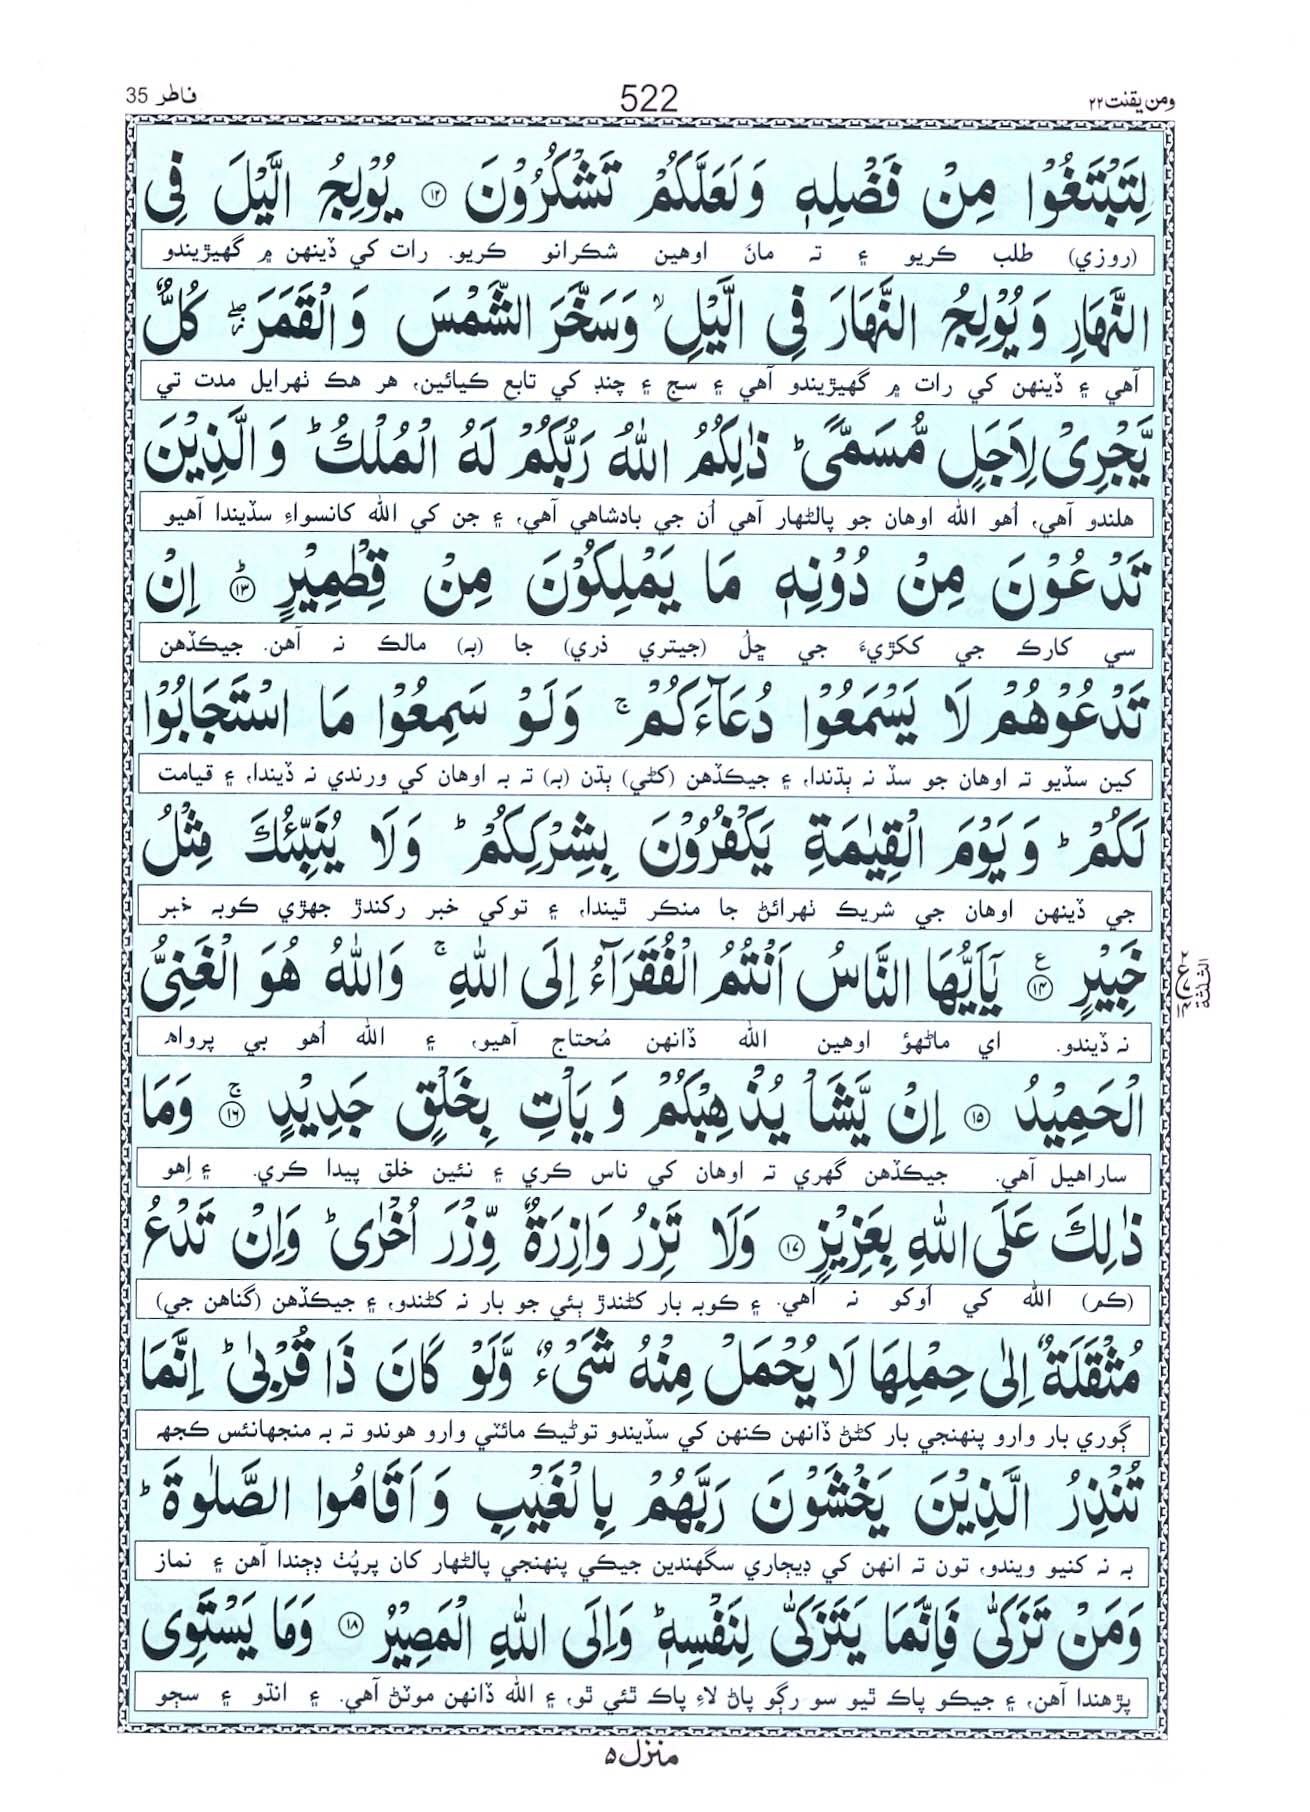 ومن يقنت ٢٢
522
فاطر 35
لِتَبْتَغُوْا مِنْ فَضْلِهٖ وَلَعَلَّكُمْ تَشْكُرُوْنَ ﴿۱۲﴾ يُوْلِجُ الَّيْلَ فِى
(روزي) طلب ڪريو ۽ ته مانَ اوهين شڪرانو ڪريو. رات کي ڏينهن ۾ گھيڙيندو
النَّهَارِ وَيُوْلِجُ النَّهَارَ فِى الَّيْلِ ۙ وَسَخَّرَ الشَّمْسَ وَالْقَمَرَ ۖ كُلٌّ
آهي ۽ ڏينهن کي رات ۾ گھيڙيندو آهي ۽ سج ۽ چنڊ کي تابع ڪيائين، هر هڪ ٺهرايل مدت تي
يَّجْرِىْ لِاَجَلٍ مُّسَمًّى ؕ ذٰلِكُمُ اللّٰهُ رَبُّكُمْ لَهُ الْمُلْكُ ؕ وَالَّذِيْنَ
هلندو آهي، اُهو الله اوهان جو پالڻھار آهي اُن جي بادشاهي آهي، ۽ جن کي الله کانسواءِ سڏيندا آهيو
تَدْعُوْنَ مِنْ دُوْنِهٖ مَا يَمْلِكُوْنَ مِنْ قِطْمِيْرٍ ؕ﴿۱۳﴾ اِنْ
سي کارڪ جي ککڙيءَ جي ڇلُ (جيتري ذري) جا (به) مالڪ نہ آهن. جيڪڏهن
تَدْعُوْهُمْ لَا يَسْمَعُوْا دُعَآءَكُمْ ۚ وَلَوْ سَمِعُوْا مَا اسْتَجَابُوْا
کين سڏيو ته اوهان جو سڏ نہ ٻڌندا، ۽ جيڪڏهن (کڻي) ٻڌن (به) ته به اوهان کي ورندي نہ ڏيندا، ۽ قيامت
لَكُمْ ؕ وَيَوْمَ الْقِيٰمَةِ يَكْفُرُوْنَ بِشِرْكِكُمْ ؕ وَلَا يُنَبِّئُكَ مِثْلُ
جي ڏينهن اوهان جي شريڪ ٺهرائڻ جا منڪر ٿيندا، ۽ توکي خبر رکندڙ جهڙي ڪوبه خبر
خَبِيْرٍ ﴿۱۴﴾ ع يٰۤاَيُّهَا النَّاسُ اَنْتُمُ الْفُقَرَآءُ اِلَى اللّٰهِ ۚ وَاللّٰهُ هُوَ الْغَنِىُّ
نہ ڏيندو. اي ماڻهؤ اوهين الله ڏانهن مُحتاج آهيو، ۽ الله اُهو بي پرواه
الْحَمِيْدُ ﴿۱۵﴾ اِنْ يَّشَاْ يُذْهِبْكُمْ وَيَاْتِ بِخَلْقٍ جَدِيْدٍ ۚ﴿۱۶﴾ وَمَا
ساراهيل آهي. جيڪڏهن گھري ته اوهان کي ناس ڪري ۽ نئين خلق پيدا ڪري. ۽ اِهو
ذٰلِكَ عَلَى اللّٰهِ بِعَزِيْزٍ ﴿۱۷﴾ وَلَا تَزِرُ وَازِرَةٌ وِّزْرَ اُخْرٰى ؕ وَاِنْ تَدْعُ
(ڪم) الله کي اَوکو نہ آهي. ۽ ڪوبه بار کڻندڙ ٻئي جو بار نہ کڻندو، ۽ جيڪڏهن (گناهن جي)
مُثْقَلَةٌ اِلٰى حِمْلِهَا لَا يُحْمَلْ مِنْهُ شَىْءٌ وَّلَوْ كَانَ ذَا قُرْبٰى ؕ اِنَّمَا
ڳوري بار وارو پنهنجي بار کڻڻ ڏانهن ڪنهن کي سڏيندو توڻيڪ مائٽي وارو هوندو ته به منجهانئس ڪجهه
تُنْذِرُ الَّذِيْنَ يَخْشَوْنَ رَبَّهُمْ بِالْغَيْبِ وَاَقَامُوا الصَّلٰوةَ ؕ
به نہ کنيو ويندو، تون ته انهن کي ڊيڄاري سگھندين جيڪي پنهنجي پالڻھار کان پرپُٺ ڊڄندا آهن ۽ نماز
وَمَنْ تَزَكّٰى فَاِنَّمَا يَتَزَكّٰى لِنَفْسِهٖ ؕ وَاِلَى اللّٰهِ الْمَصِيْرُ ﴿۱۸﴾ وَمَا يَسْتَوِى
پڙهندا آهن، ۽ جيڪو پاڪ ٿيو سو رڳو پاڻ لاءِ پاڪ ٿئي ٿو، ۽ الله ڏانهن موٽڻ آهي. ۽ انڌو ۽ سڄو
منزل ٥